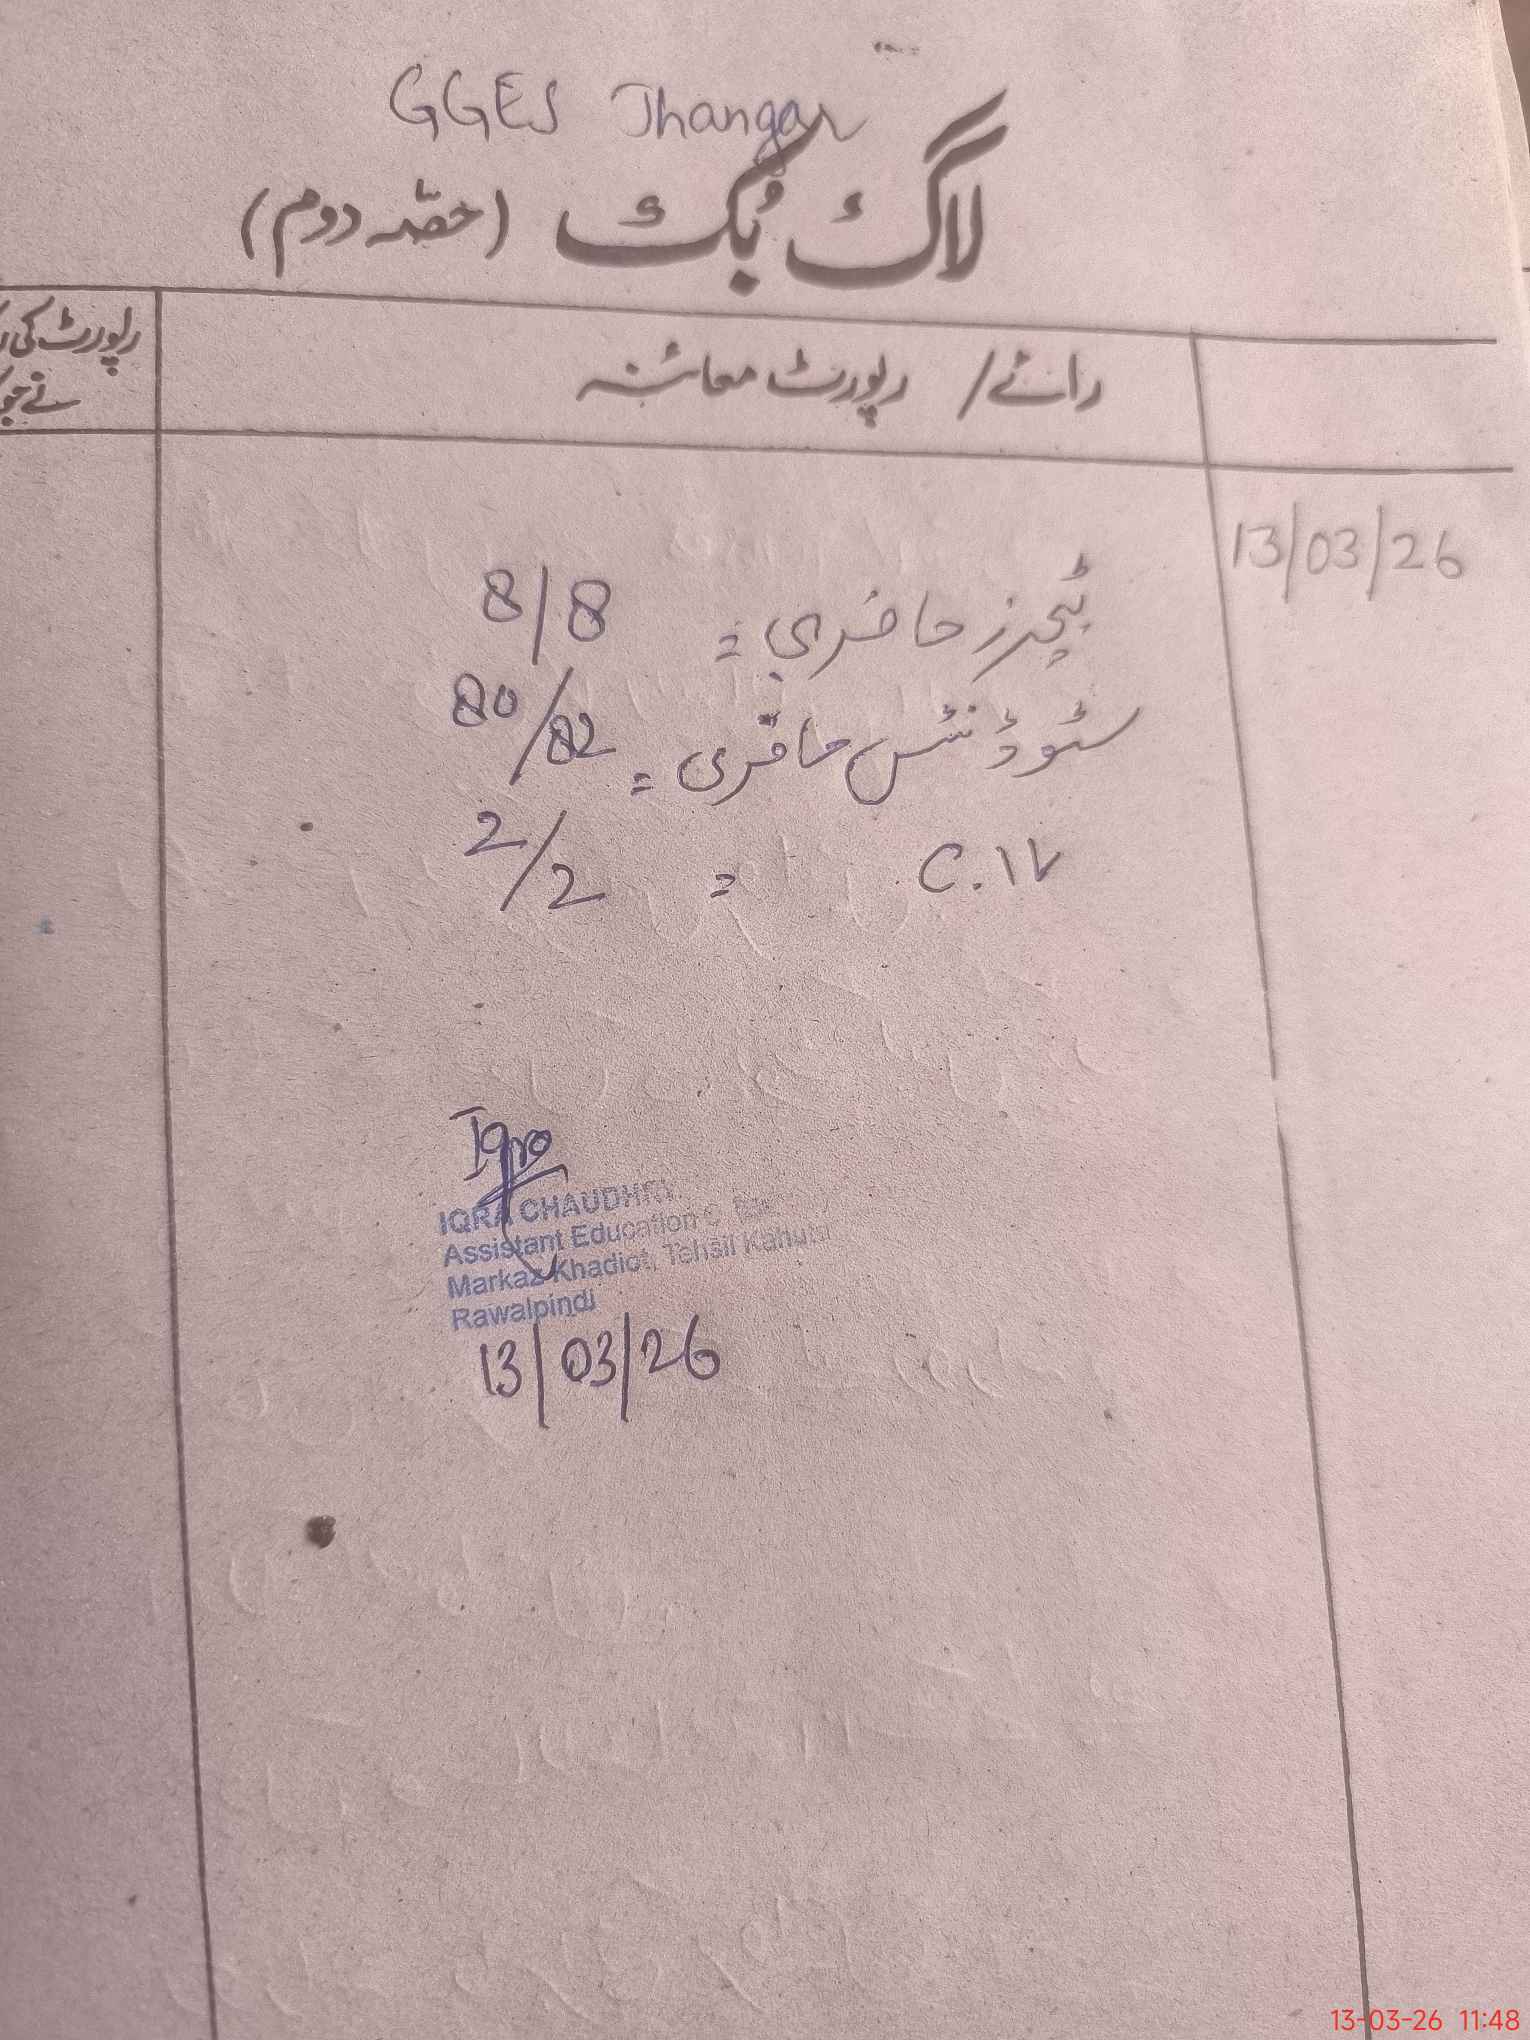 GGES Jhangar
لاگ بُک (حصّہ دوم)
رائے / رپورٹ معائنہ
رپورٹ کی
نے جو
13/03/26
ٹیچرز حاضری = 8/8
سٹوڈنٹس حاضری = 80/82
C.IV = 2/2
Iqra
IQRA CHAUDHRY
Assistant Education
Markaz Khadiot, Tehsil Kahuta
Rawalpindi
13/03/26
13-03-26 11:48